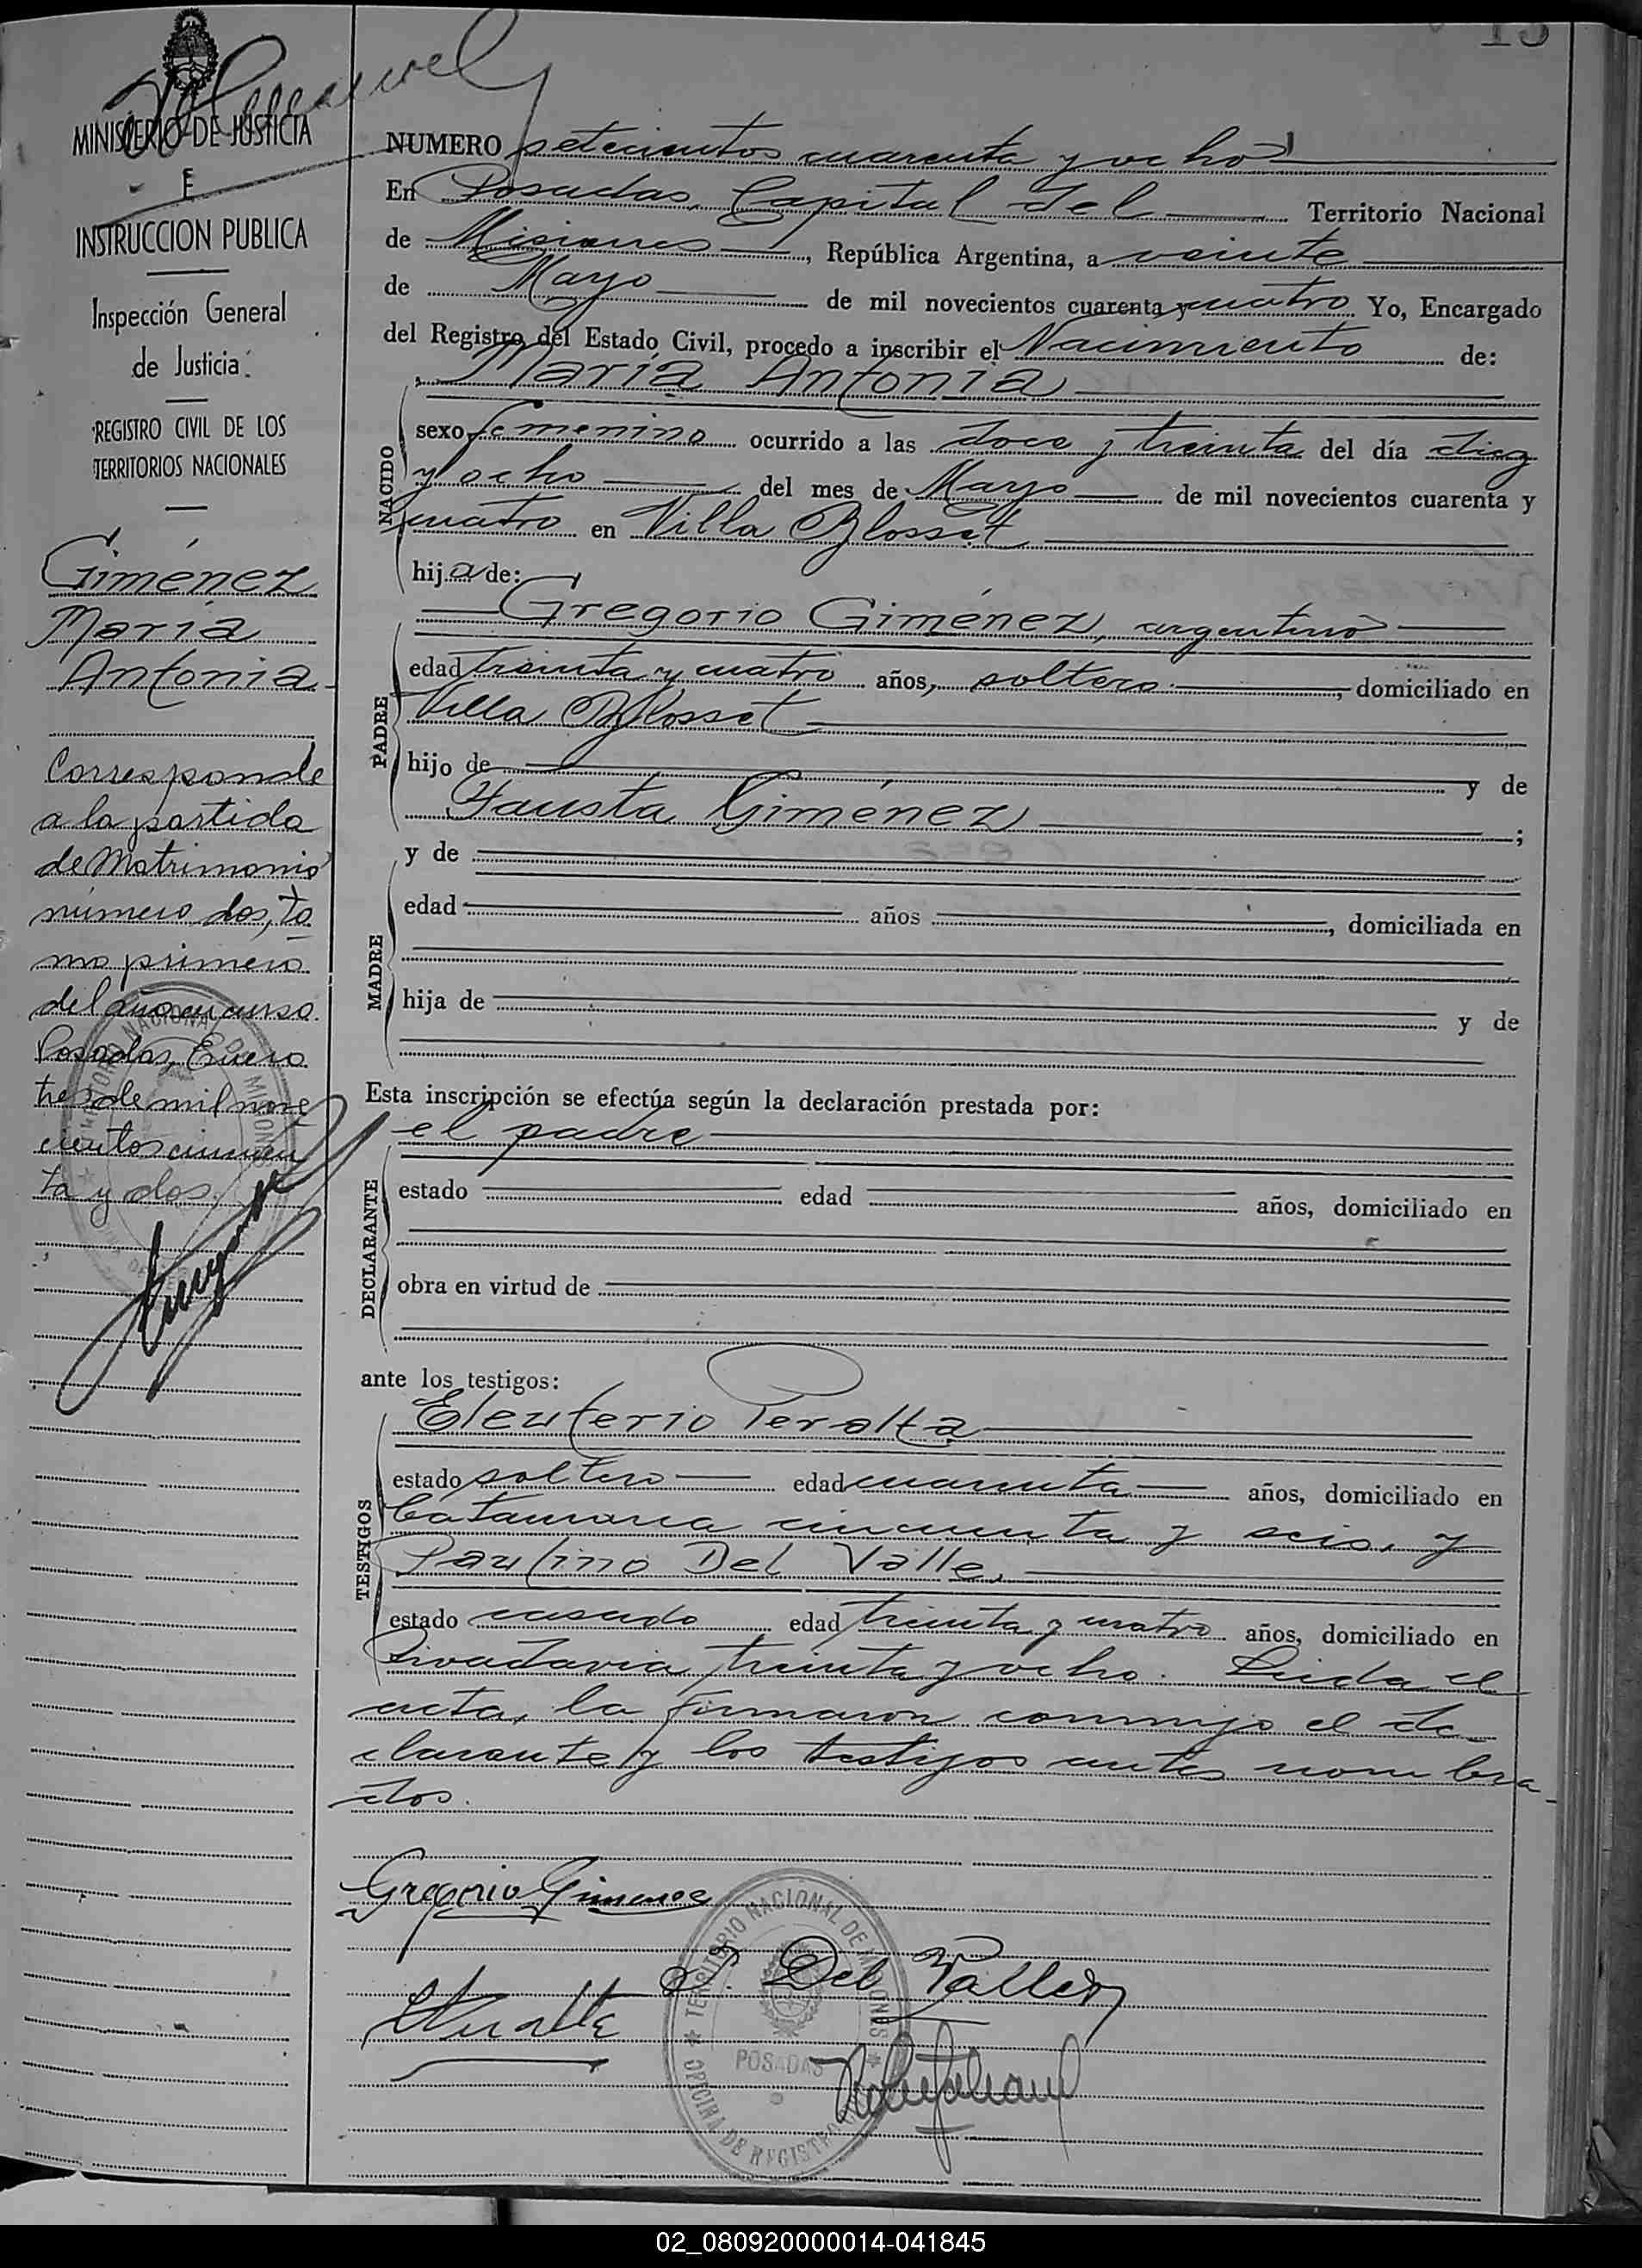 15
MINISTERIO DE JUSTICIA
E
INSTRUCCION PUBLICA
Inspección General
de Justicia
REGISTRO CIVIL DE LOS
TERRITORIOS NACIONALES
Giménez
María
Antonia
Corresponde
a la partida
de Matrimonio
número dos, to
mo primero
del año en curso.
Posadas, Enero
tres de mil nove
cientos cincuen
ta y dos.
NUMERO setecientos cuarenta y ocho
En Posadas, Capital del Territorio Nacional
de Misiones, República Argentina, a veinte
de Mayo de mil novecientos cuarenta y cuatro Yo, Encargado
del Registro del Estado Civil, procedo a inscribir el Nacimiento de:
María Antonia
NACIDO
sexo femenino ocurrido a las doce y treinta del día diez
y ocho del mes de Mayo de mil novecientos cuarenta y
cuatro en Villa Blosset
hija de:
Gregorio Giménez, argentino
PADRE
edad treinta y cuatro años, soltero, domiciliado en
Villa Blosset
hijo de y de
Fausta Giménez;
MADRE
y de
edad años, domiciliada en
hija de y de
Esta inscripción se efectúa según la declaración prestada por:
el padre
DECLARANTE
estado edad años, domiciliado en
obra en virtud de
ante los testigos:
Eleuterio Peralta
TESTIGOS
estado soltero edad cuarenta años, domiciliado en
Catamarca cincuenta y seis, y
Paulino Del Valle,
estado casado edad treinta y cuatro años, domiciliado en
Rivadavia treinta y ocho. Leída el
acta, la firmaron conmigo el de
clarante y los testigos antes nombra-
dos.
Gregorio Gimenez
P. Del Valle
TERRITORIO NACIONAL DE MISIONES
POSADAS
OFICINA DE REGISTRO
02_080920000014-041845